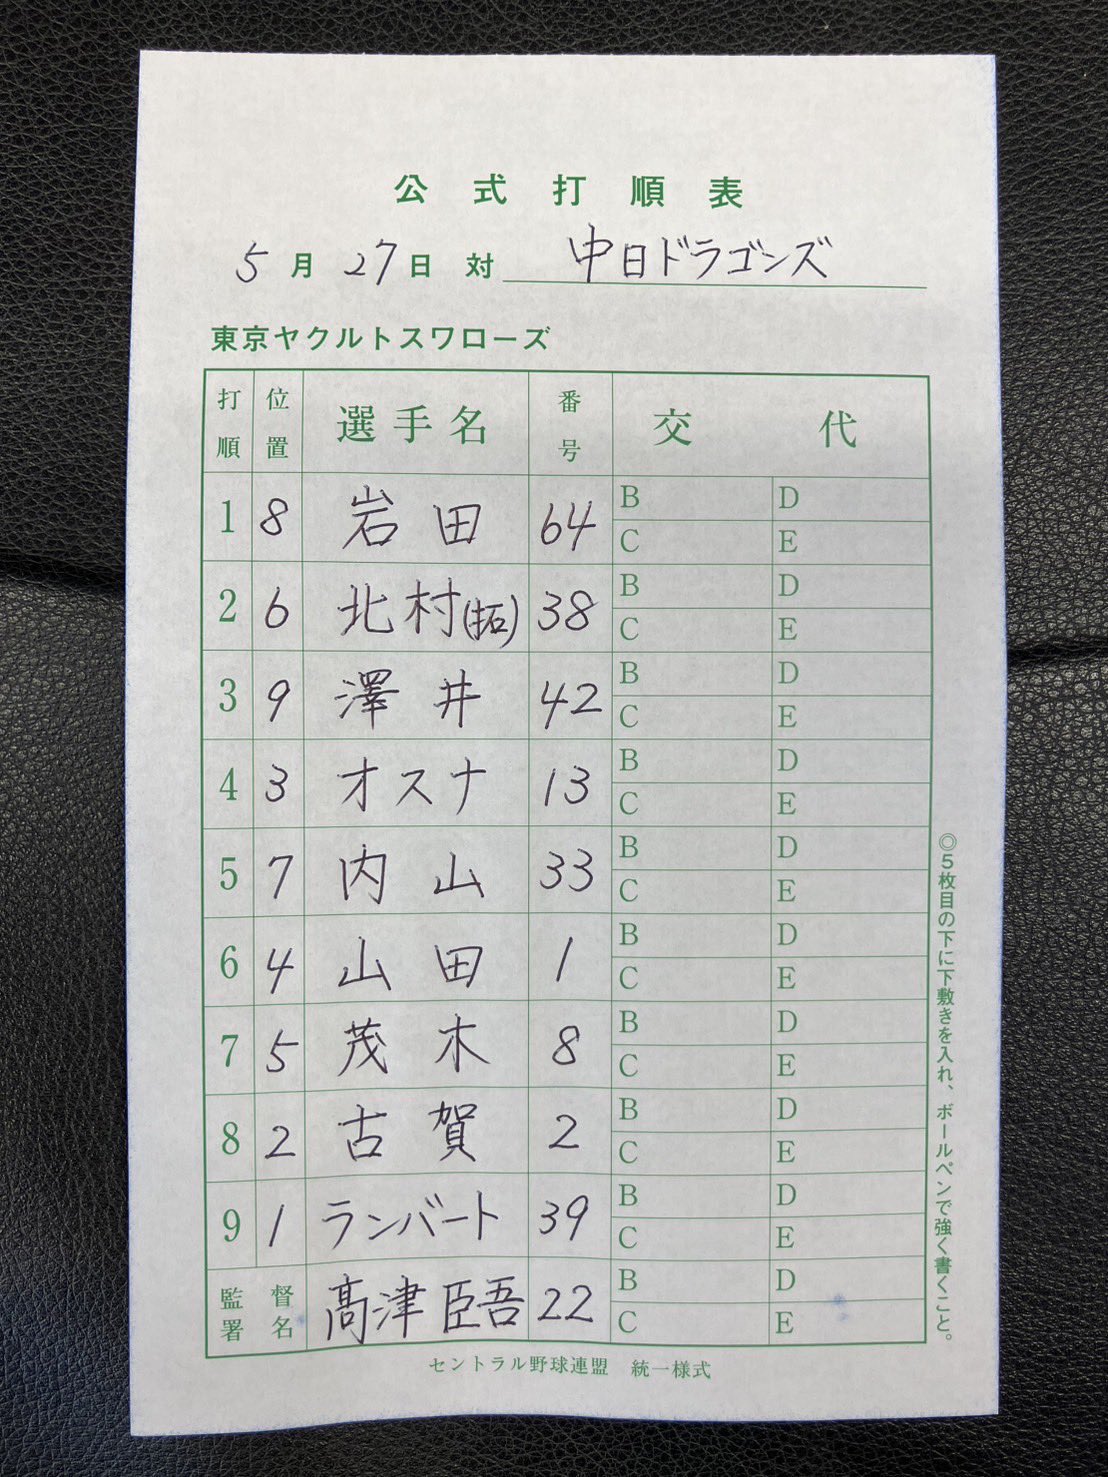 公式打順表
5月27日 対 中日ドラゴンズ
東京ヤクルトスワローズ
打順 位置 選手名 番号 交代
1 8 岩田 64 B D
C E
2 6 北村(拓) 38 B D
C E
3 9 澤井 42 B D
C E
4 3 オスナ 13 B D
C E
5 7 内山 33 B D
C E
6 4 山田 1 B D
C E
7 5 茂木 8 B D
C E
8 2 古賀 2 B D
C E
9 1 ランバート 39 B D
C E
監督署名 髙津臣吾 22 B D
C E
セントラル野球連盟 統一様式
◎5枚目の下に下敷きを入れ、ボールペンで強く書くこと。